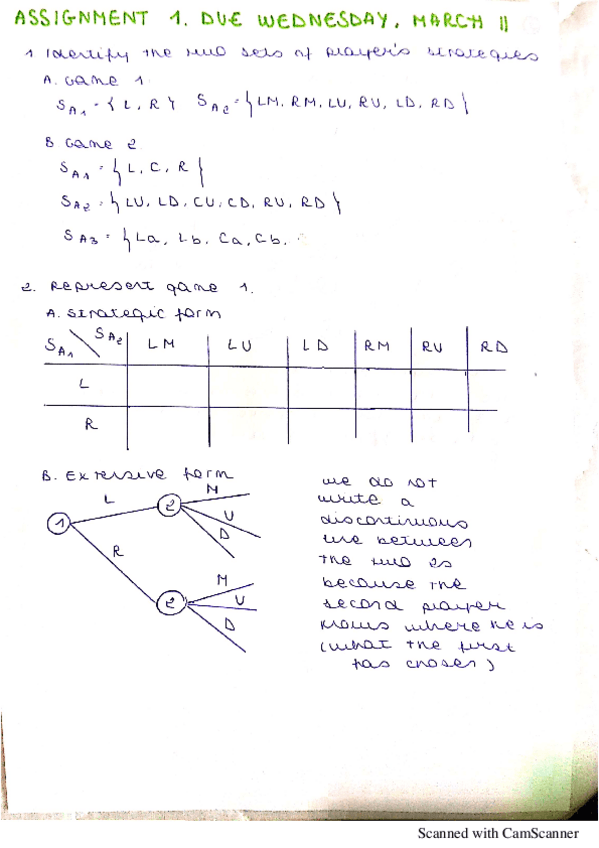 ASSIGNMENT 1. DUE WEDNESDAY, MARCH 11
1 Identify the two sets of player's strategies
A. Game 1.
S A1 = { L, R } S A2 = { LM, RM, LU, RU, LD, RD }
B Game 2
S A1 = { L, C, R }
S A2 = { LU, LD, CU, CD, RU, RD }
S A3 = { La, Lb, Ca, Cb,
2. Represent game 1.
A. Strategic form
S A1 S A2 LM LU LD RM RU RD
L
R
B. Extensive form
1 L 2 M U D
R 2 M U D
we do not
write a
discontinuous
line between
the two 2s
because the
second player
knows where he is
(what the first
has chosen)
Scanned with CamScanner